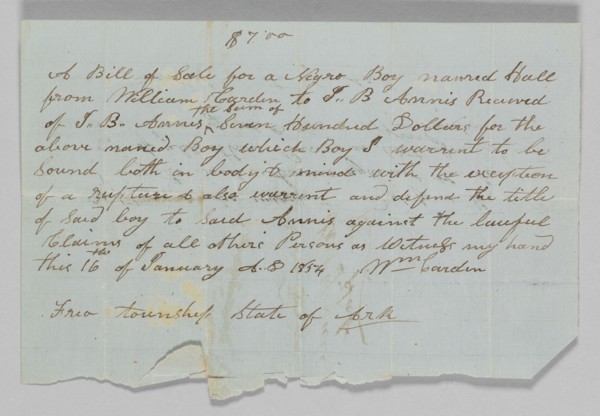 $7.00
A Bill of Sale for a Negro Boy named Hall
from William Carden to J. B Annis Received
of J. B. Annis the Sum of Seven Hundred Dollars for the
above named Boy which Boy I warrent to be
Sound both in body & mind with the exception
of a rupture & also warrent and defend the title
of Said boy to Said Annis against the lawful
Claims of all others Persons as Witness my hand
this 16 the of January A.D 1854 Wm Carden
Township State of Ark